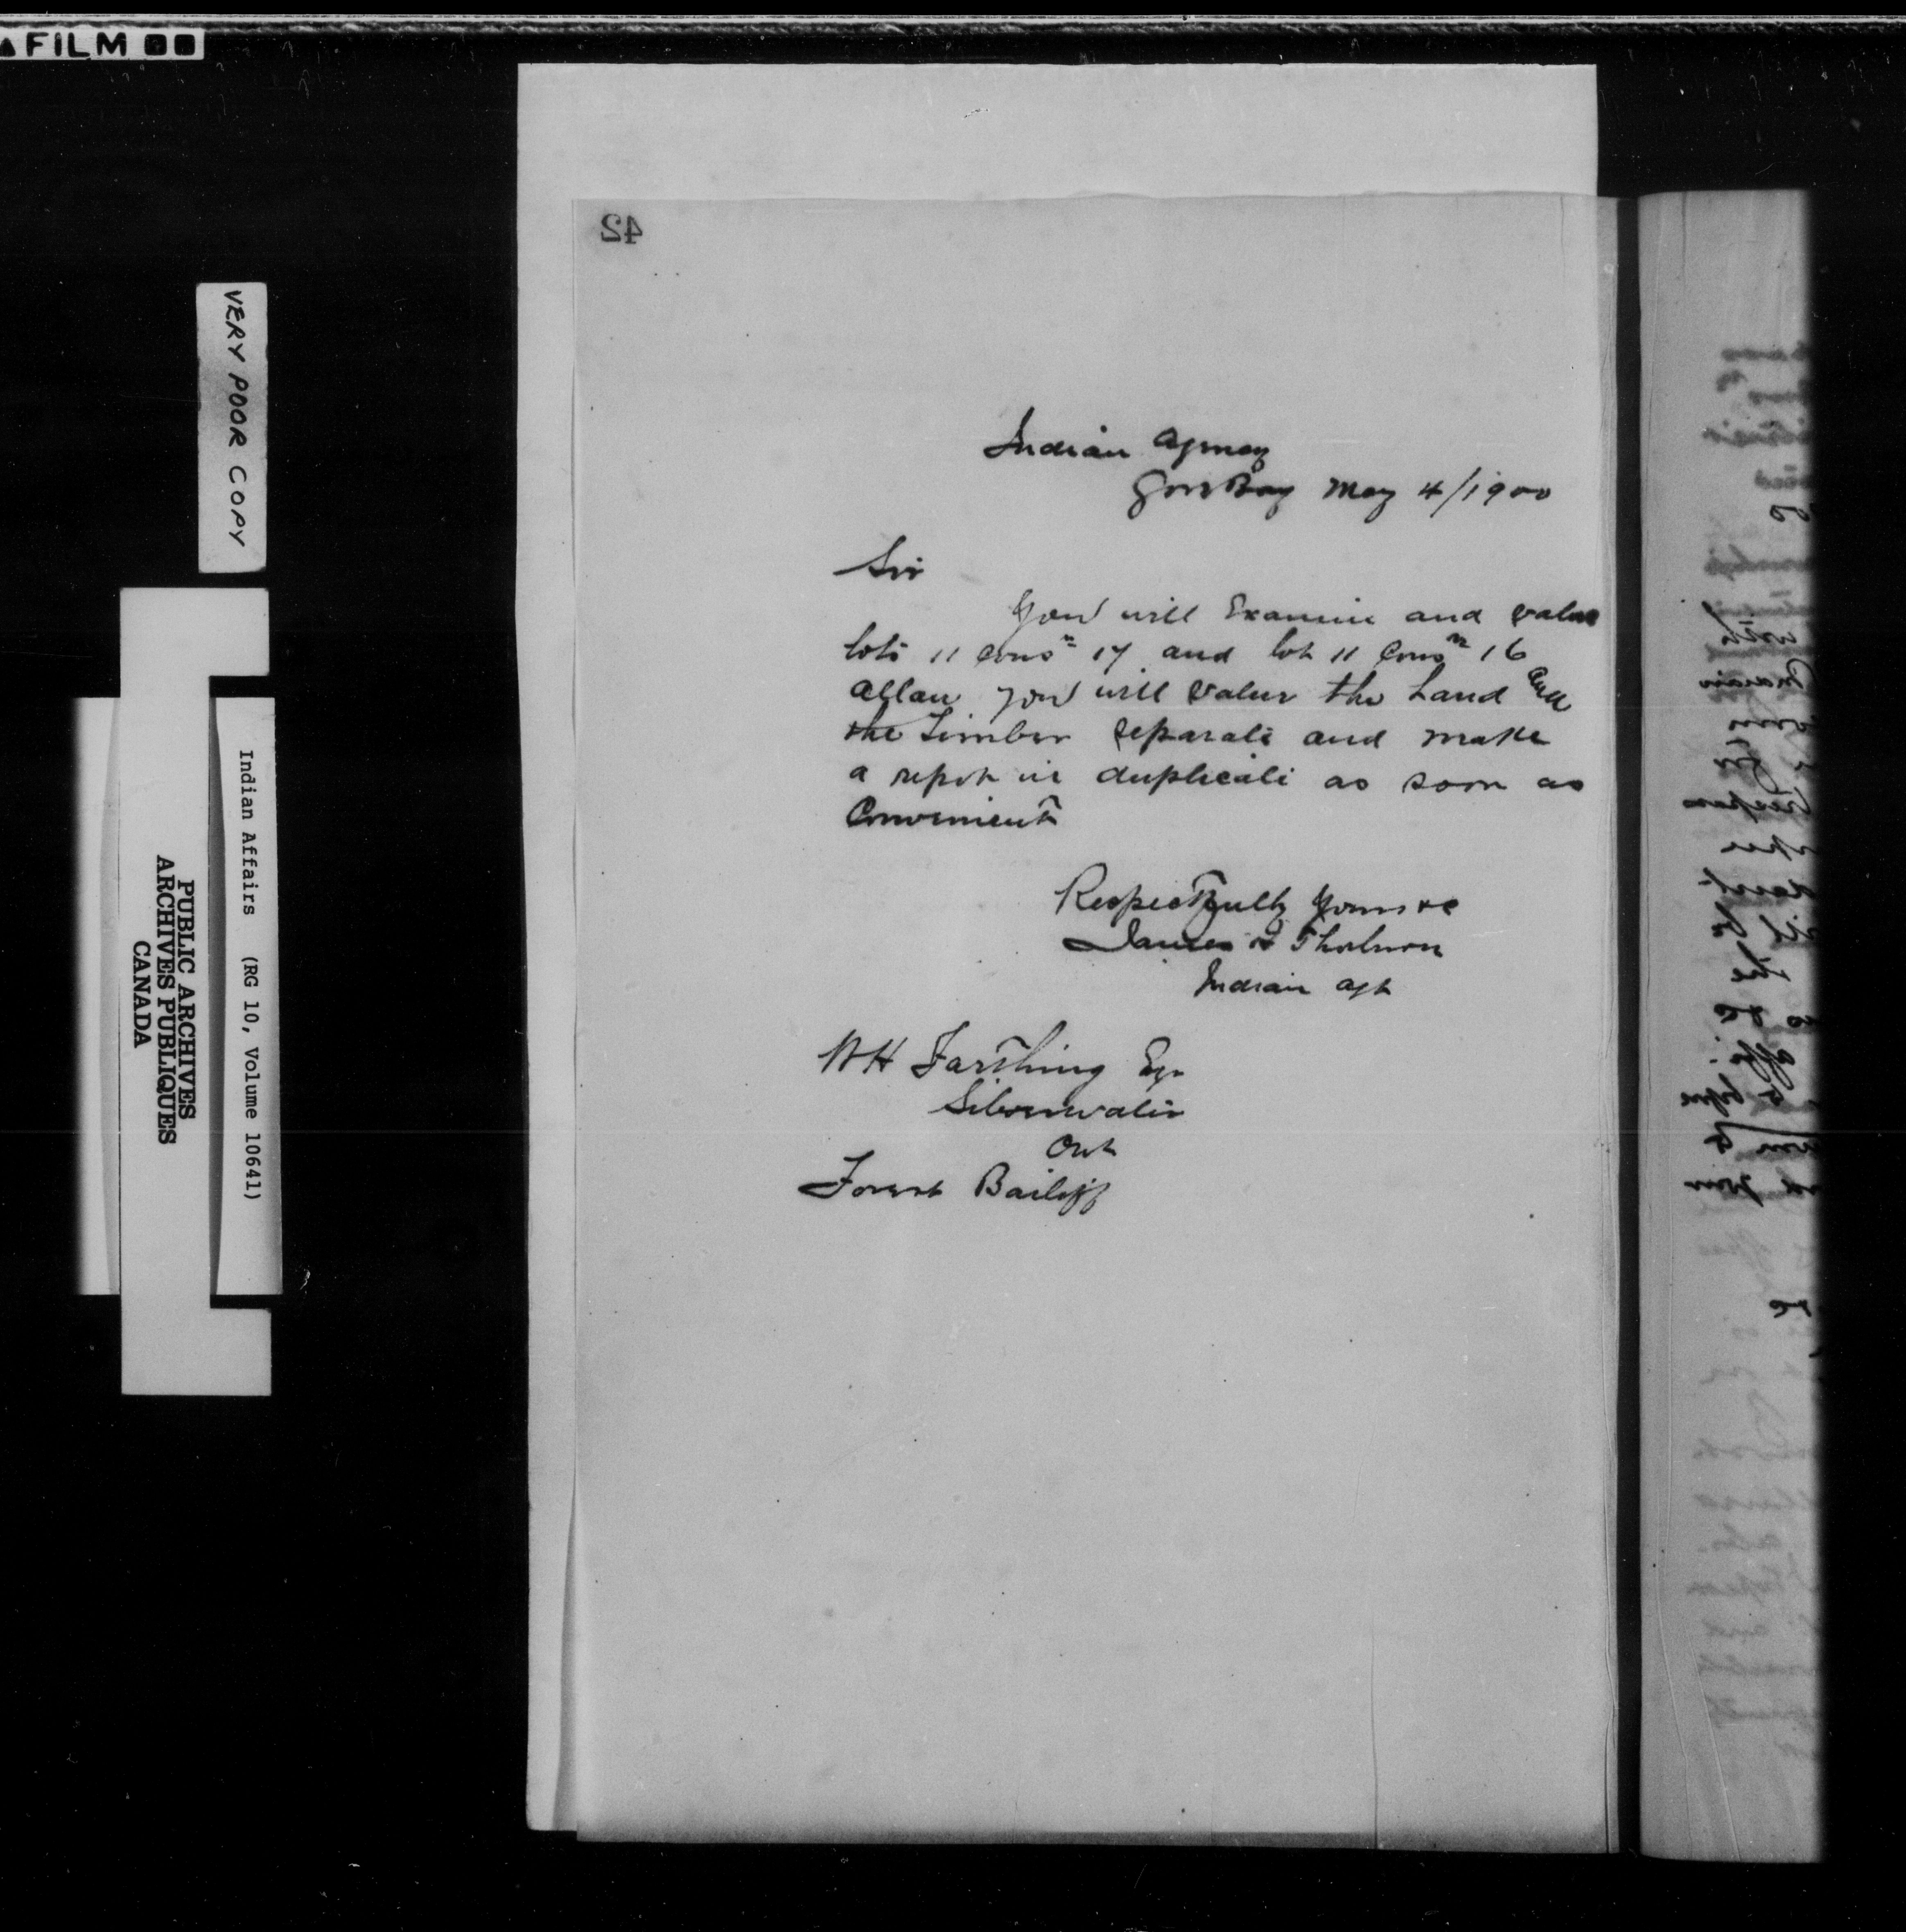 FILM
42
VERY POOR COPY
Indian Affairs (RG 10, Volume 10641)
PUBLIC ARCHIVES
ARCHIVES PUBLIQUES
CANADA
Indian Agency
Gore Bay May 4/1900
Sir
You will Examine and value
lots 11 Cons n 17 and lot 11 Cons n 16
Allan you will value the Land and
the Timber separate and make
a report in duplicate as soon as
Convenient
Respectfully Yours &c
James H Thorburn
Indian Agt
WH Farthing Esq
Silverwater
Ont
Forest Bailiff